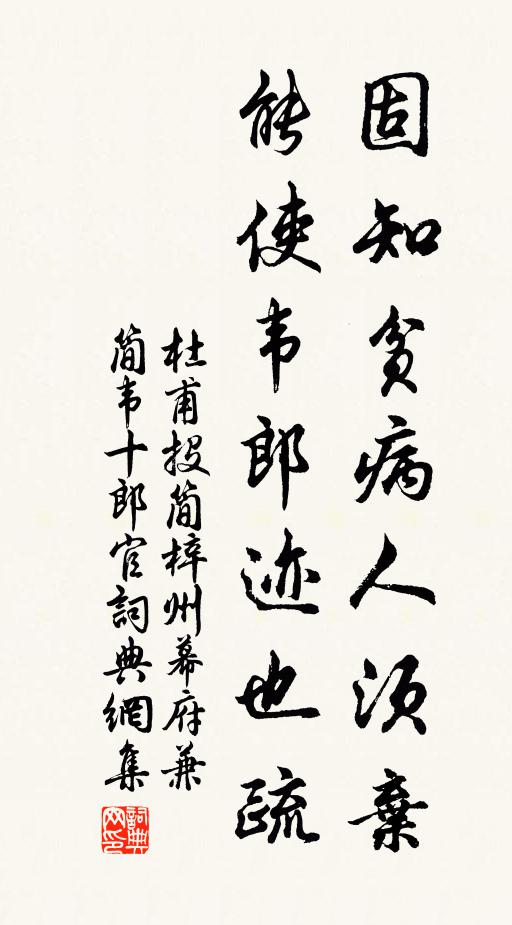 固知贫病人须棄
能使韦郎迹也疏
杜甫投简梓州幕府兼
简韦十郎官詞典網集
詞典
网印